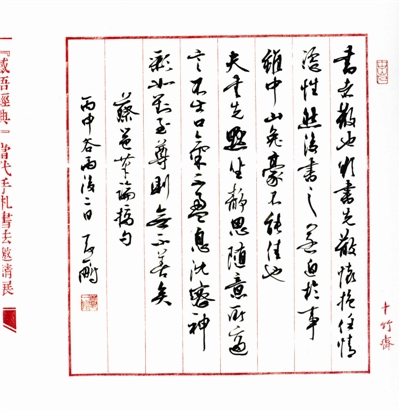 書者散也欲書先散懷抱任情
恣性然後書之若迫於事
雖中山兔豪不能佳也
夫書先默坐靜思隨意所適
言不出口氣不盈息沈密神
彩如對至尊則無不善矣
蔡邕筆論摘句
丙申谷雨後二日 鵬
十竹齋
『感悟經典』當代手札書法邀請展